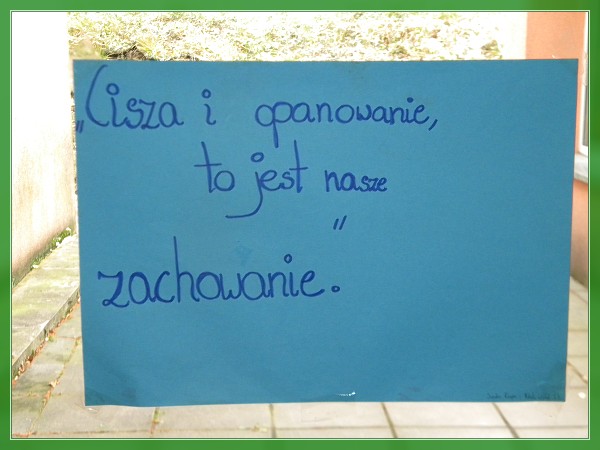 „Cisza i opanowanie,
to jest nasze
zachowanie.”